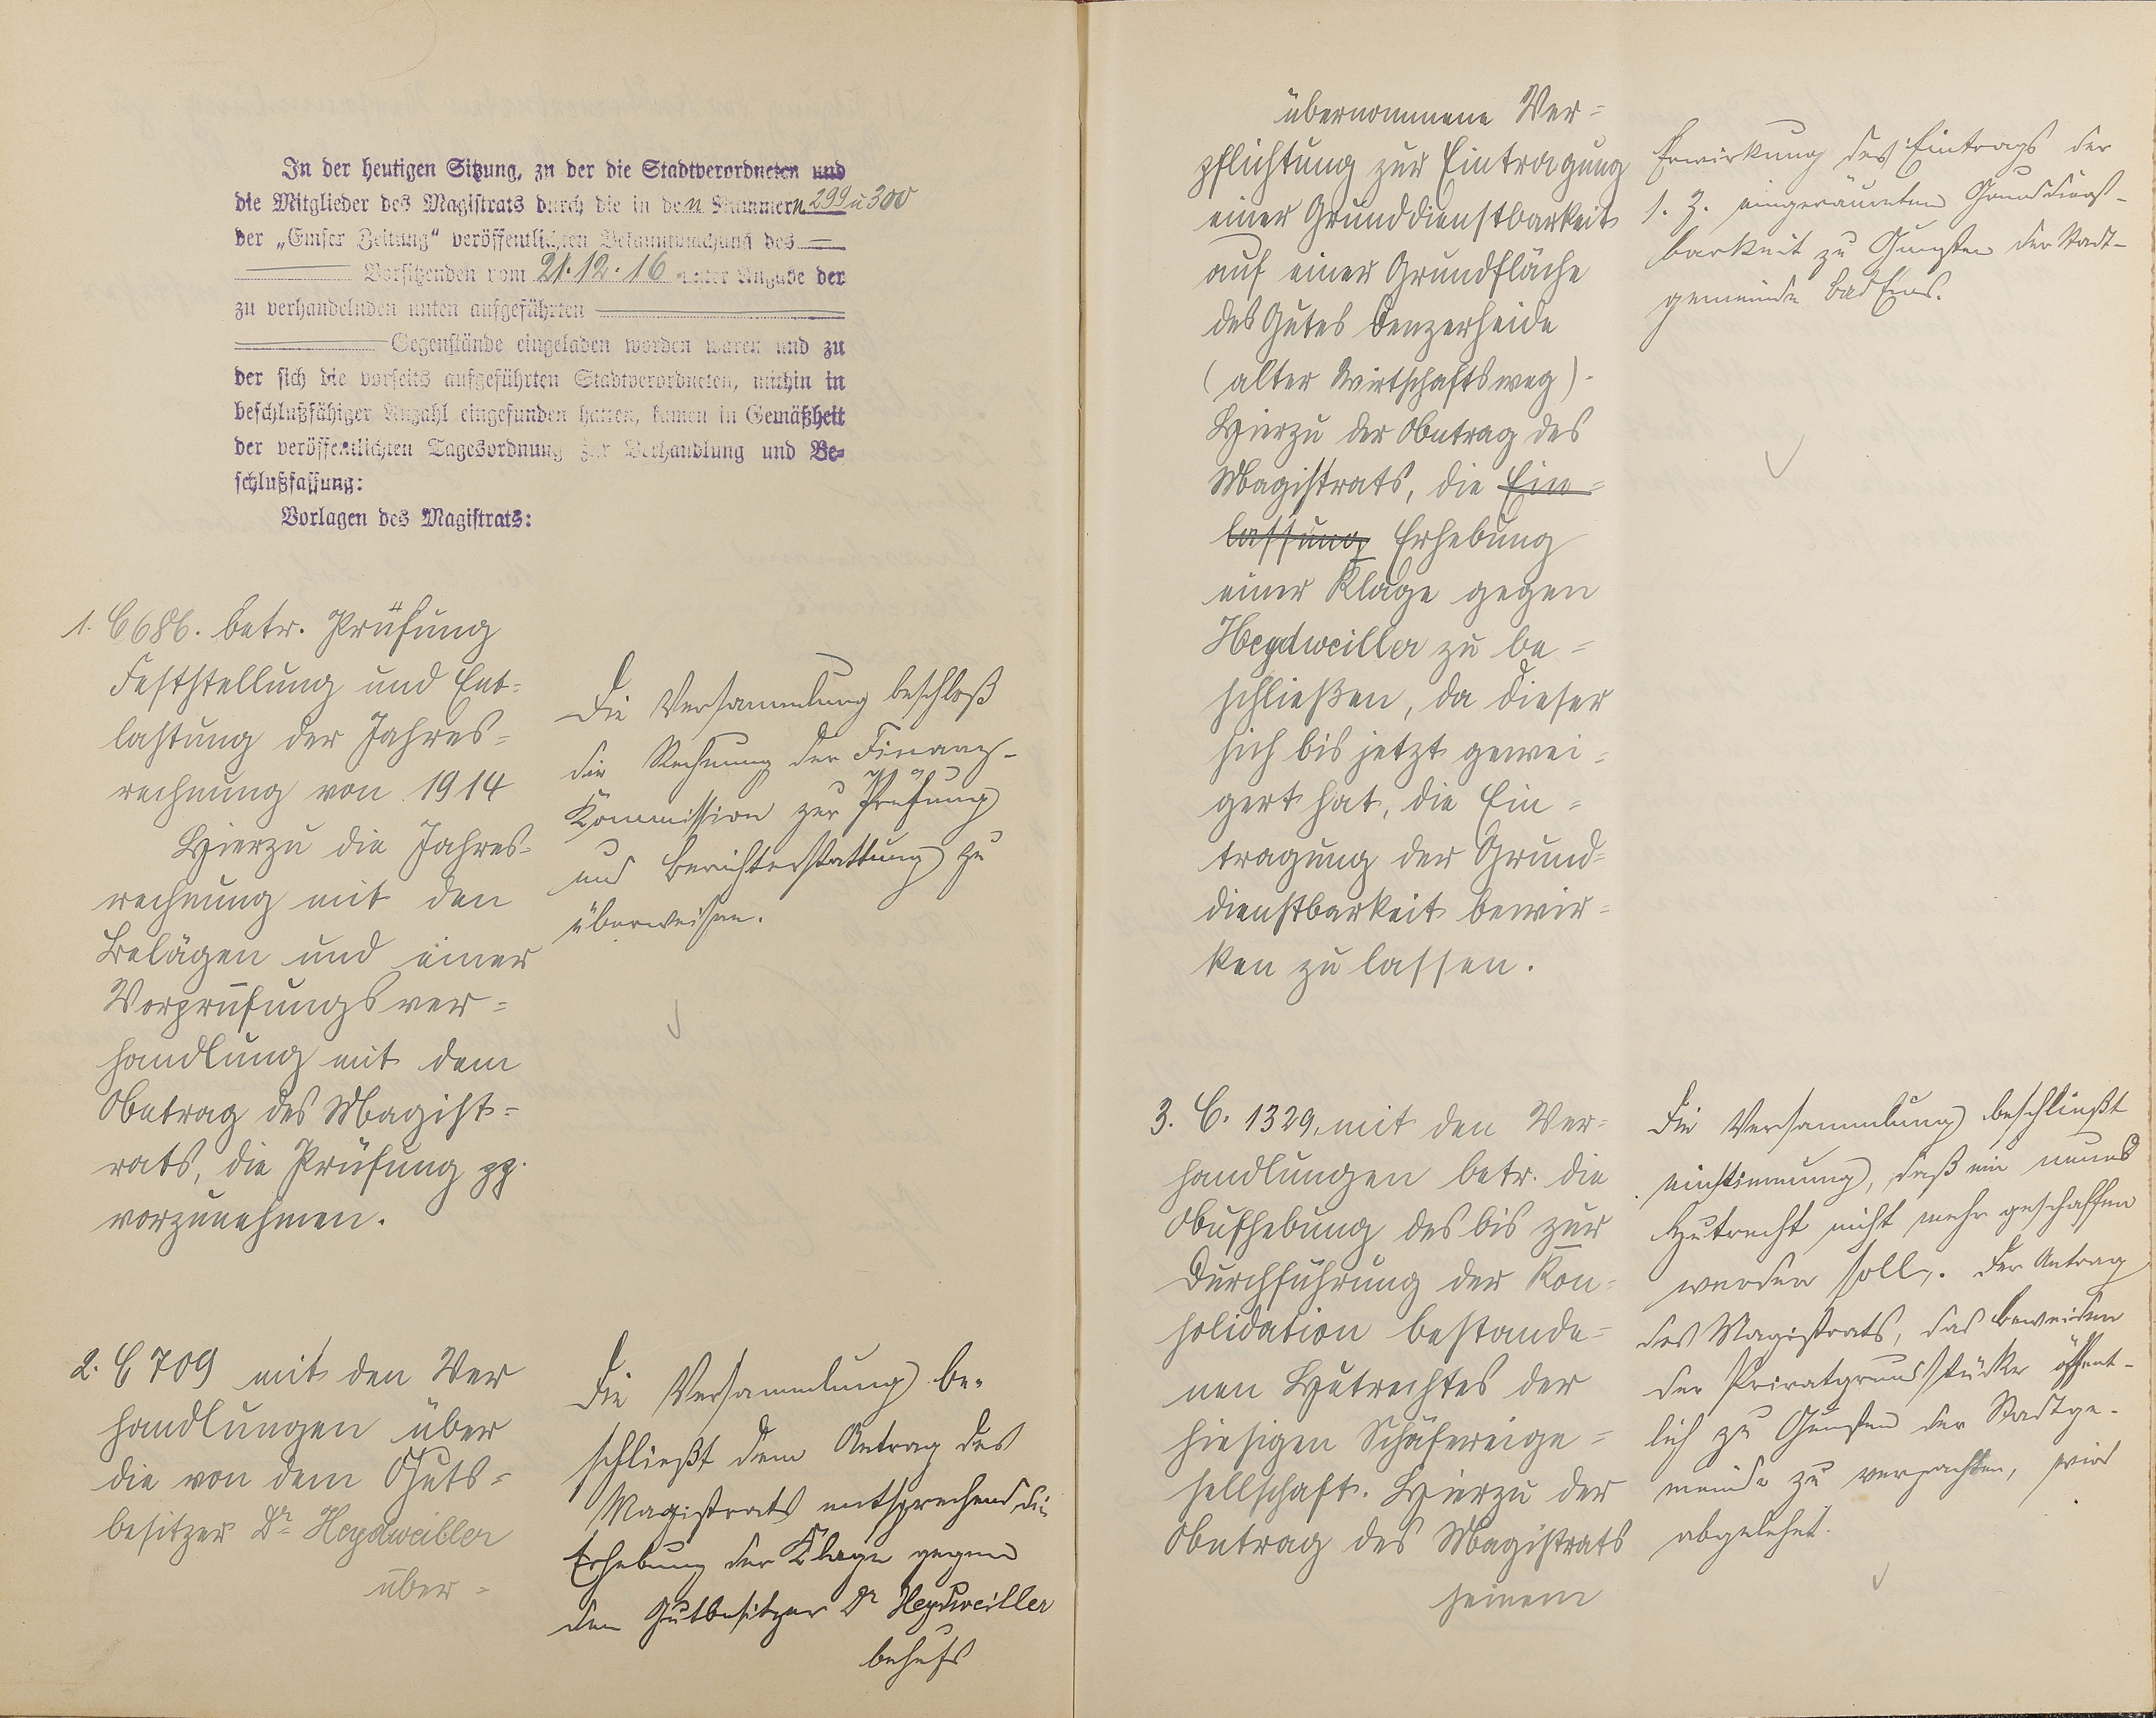 In der heutigen Sitzung, zu der die Stadtverordneten und
die Mitglieder des Magistrats durch die in den Nummern 299 u 300
der „Emser Zeitung“ veröffentlichten Bekanntmachung des
Vorsitzenden vom 21.12.16 unter Angabe der
zu verhandelnden unten aufgeführten
Gegenstände eingeladen worden waren und zu
der sich die vorseits aufgeführten Stadtverordneten, mithin in
beschlußfähiger Anzahl eingefunden hatten, kamen in Gemäßheit
der veröffentlichten Tagesordnung zur Verhandlung und Be-
schlußfassung:
Vorlagen des Magistrats:
1. C 686. betr. Prüfung
Feststellung und Ent-
lastung der Jahres-
rechnung von 1914
Hierzu die Jahres-
rechnung mit den
Belägen und einer
Vorprüfungsver-
handlung mit dem
Antrag des Magist-
rats, die Prüfung pp.
vorzunehmen.
Die Versammlung beschloß
die Rechnung der Finanz-
Kommission zur Prüfung
und Berichterstattung zu
überweisen.
2. C 709 mit den Ver
handlungen über
die von dem Guts-
besitzer Dr Heydweiller
über-
Die Versammlung be-
schließt dem Antrag des
Magistrats entsprechend die
Erhebung der Klage gegen
den Gutbesitzer Dr Heydweiller
behufs
übernommene Ver-
pflichtung zur Eintragung
einer Grunddienstbarkeit
auf einer Grundfläche
des Gutes Denzerheide
(alter Wirtschaftsweg).
Hierzu der Antrag des
Magistrats, die Ein-
lassung Erhebung
einer Klage gegen
Heydweiller zu be-
schließen, da dieser
sich bis jetzt gewei-
gert hat, die Ein-
tragung der Grund-
dienstbarkeit bewir-
ken zu lassen.
Erwirkung des Eintrags der
s. Z. eingeräumten Grunddienst-
barkeit zu Gunsten der Stadt-
gemeinde Bad Ems.
3. C. 1329, mit den Ver-
handlungen betr. die
Aufhebung des bis zur
Durchführung der Kon-
solidation bestande-
nen Hutrechtes der
hiesigen Schäfereige-
sellschaft. Hierzu der
Antrag des Magistrats
seinem
Die Versammlung beschließt
einstimmung, daß ein neues
Hutrecht nicht mehr geschaffen
werden soll. Der Antrag
des Magistrats, das Beweiden
der Privatgrundstücke öffent-
lich zu Gunsten der Stadtge-
meinde zu verpachten, wird
abgelehnt.